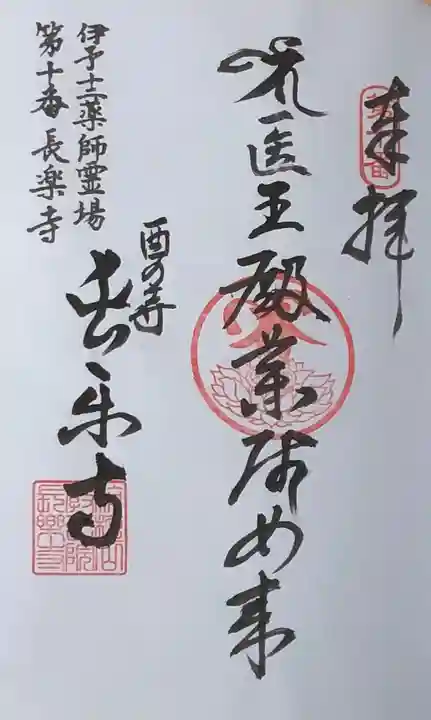 奉拝
医王殿
薬師如来
酉の寺
長楽寺
伊予十二薬師霊場
第十番 長楽寺